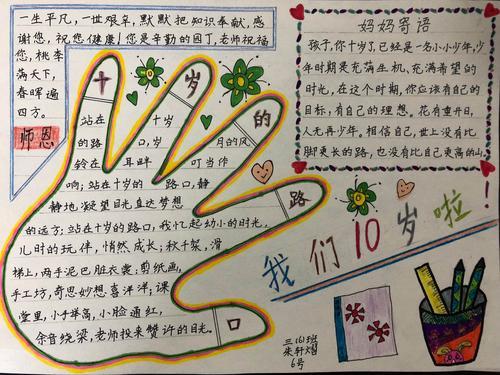 一生平凡,一世艰辛,默默把知识奉献,感
谢您,祝您健康!您是辛勤的园丁,老师祝福
您,桃李
满天下,
春晖遍
四方。
师恩
妈妈寄语
孩子,你十岁了,已经是一名小小少年,少
年时期是充满生机,充满希望的
时光,在这个时期,你应该有自己的
目标,有自己的理想。花有重开日,
人无再少年。相信自己,世上没有比
脚更长的路,也没有比自己更高的山
!
十
岁
的
路
口
站在 十岁
的路 口,岁 月的风
铃在 耳畔 叮当作
响;站在十岁的 路口,静
静地,凝望目光直达梦想
的远方;站在十岁的路口,我忆起幼小的时光,
儿时的玩伴,悄然成长;秋千架,滑
梯上,两手泥巴脏衣裳;剪纸画,
手工坊,奇思妙想喜洋洋;课
堂里,小手举高,小脸通红,
余音绕梁,老师投来赞许的目光。
我们10岁啦!
三(6)班
朱轩熠
6号